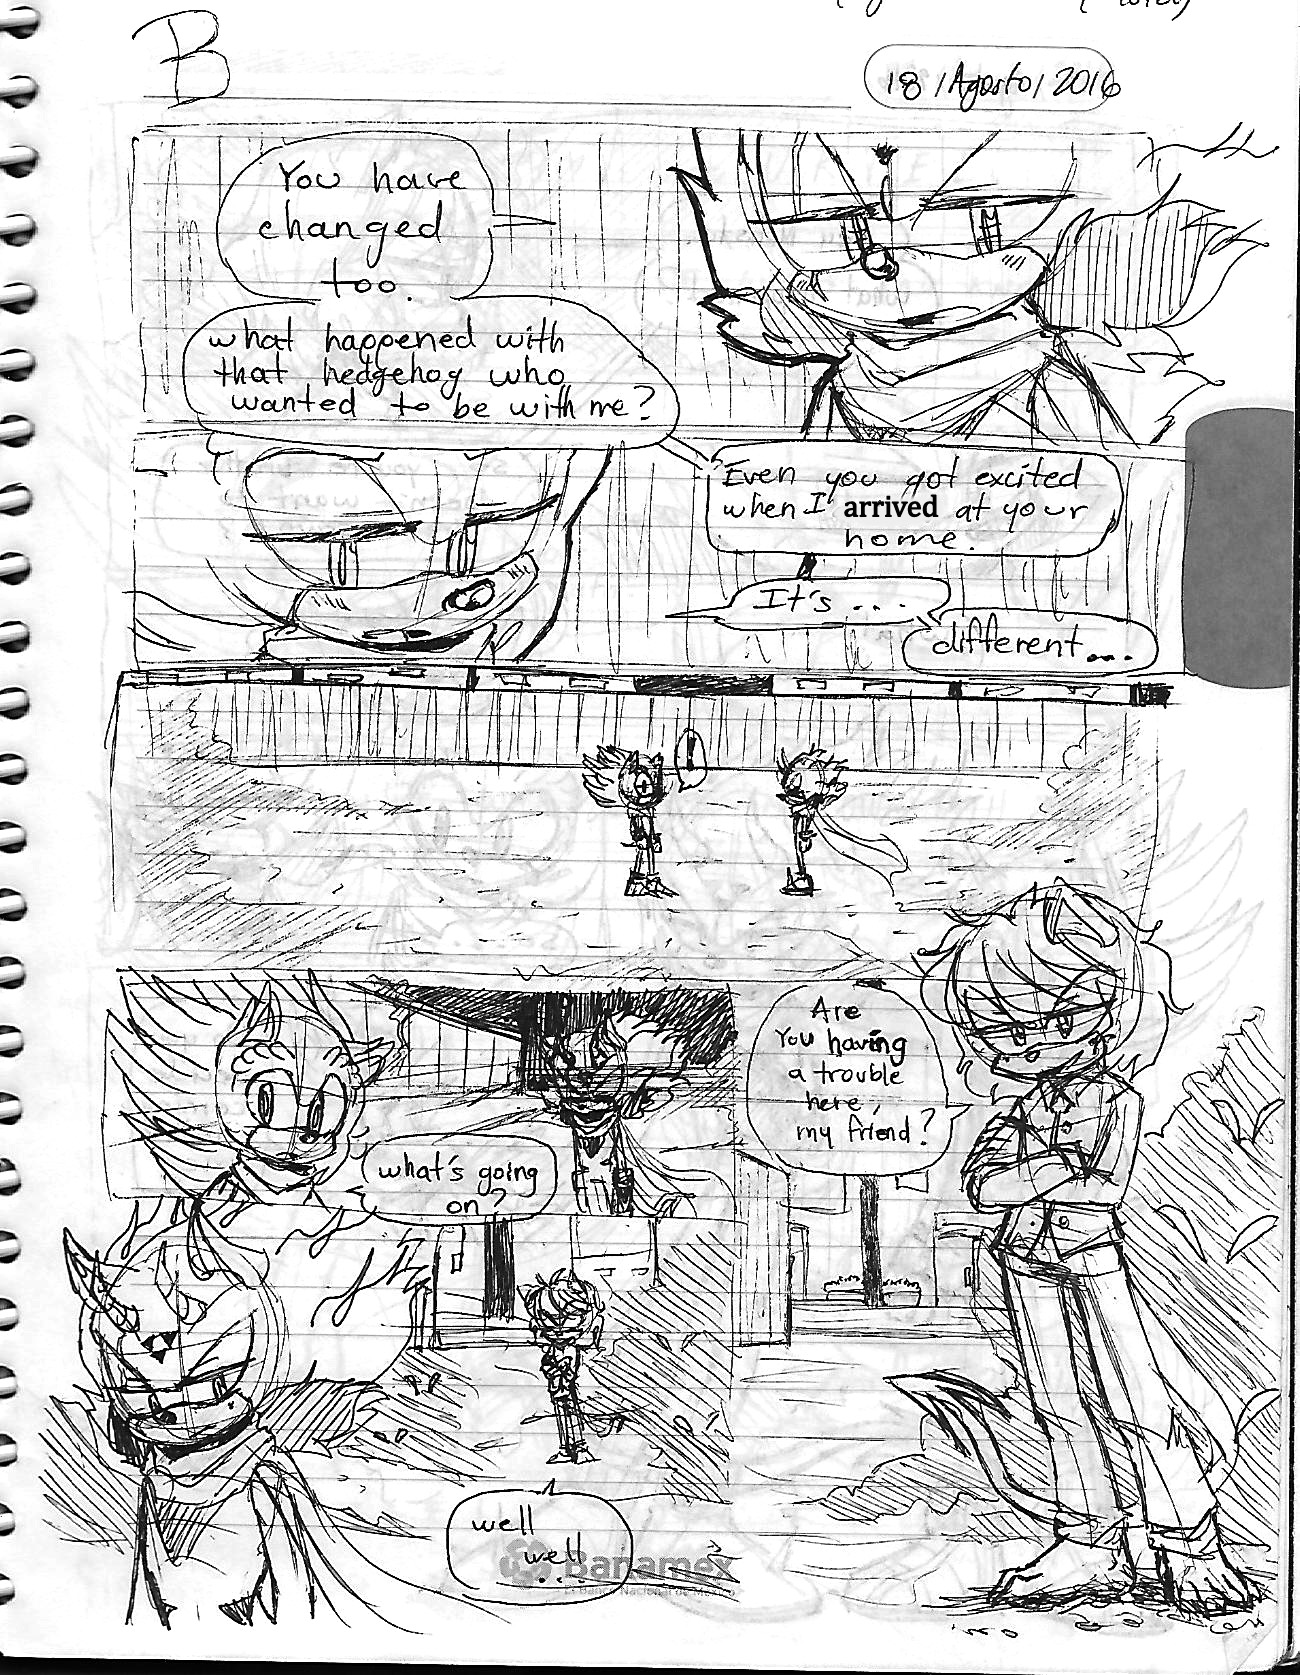 B
18 / Agosto / 2016
You have
changed
too.
what happened with
that hedgehog who
wanted to be with me?
Even you got excited
when I arrived at your
home.
It's ...
different...
!
Are
You having
a trouble
here,
my friend?
what's going
on?
well
well
...
Banamex
El Banco Nacional de México